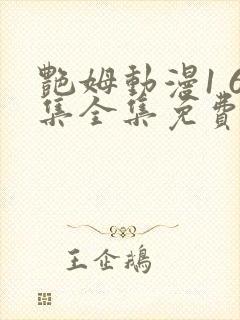 艷姆動漫1 6
集全集免費
王企鵝